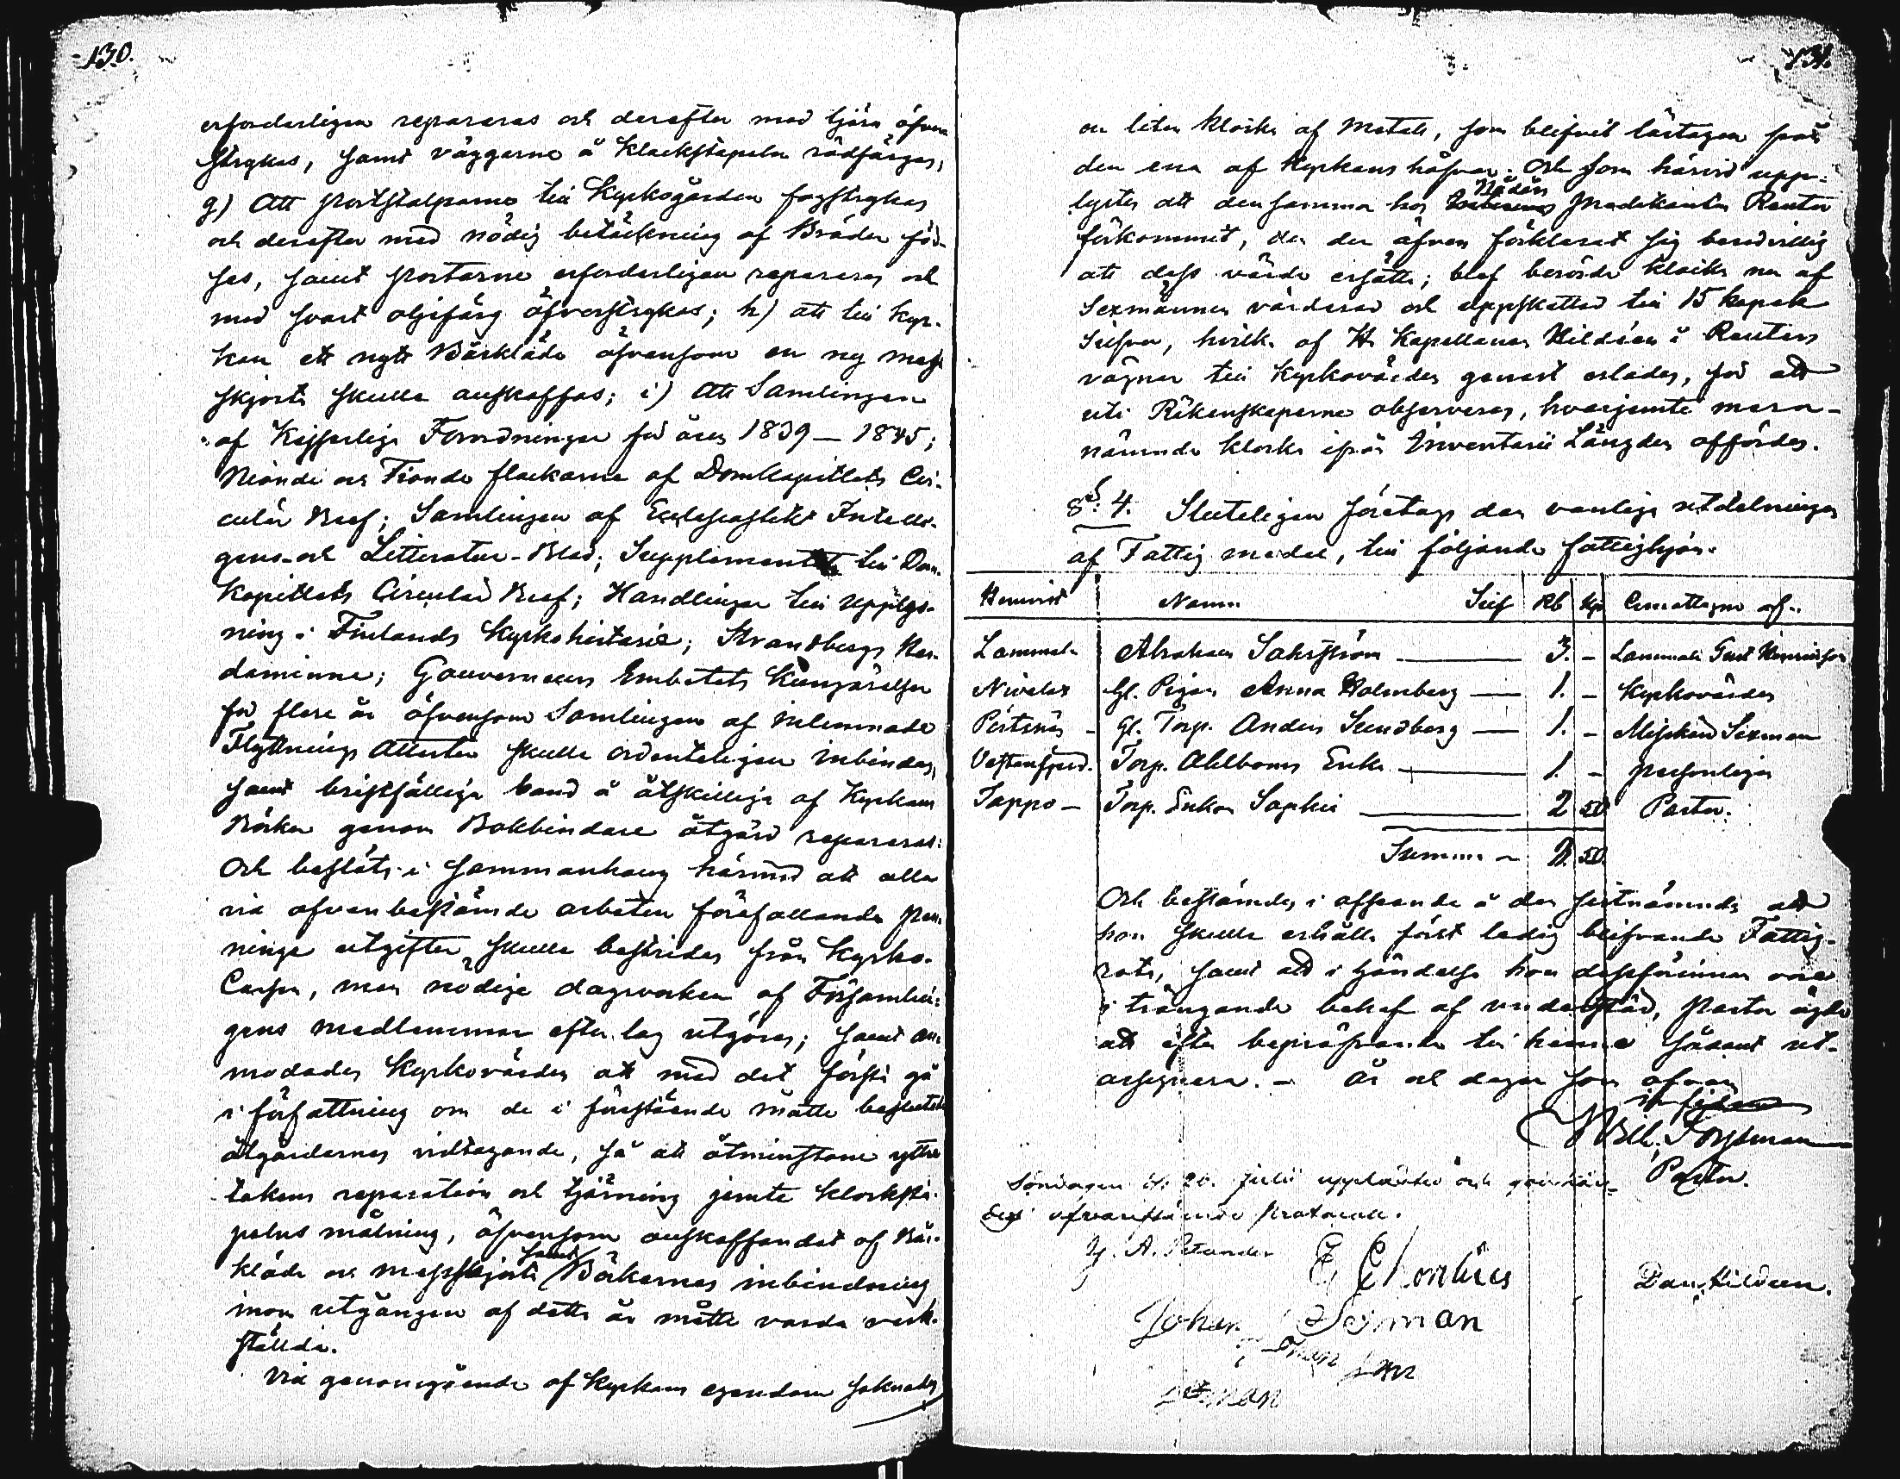 130.
erforderligen repareras och derefter med tjära öfver
strykas, samt väggarne å Klockstapeln rödfärgas;
g) Att portstolparne till Kyrkogården fogstrykas
och derefter med nödig betäckning af Bräder förses,
samt portarne erforderligen repareras och
med svart oljefärg öfverstrykas; h) att till Kyrkan
ett nytt Bårkläde äfvensom en ny mess
skjorta skulle anskaffas; i) Att Samlingen
af Kejserliga Förordningar för åren 1839 — 1845;
Nionde och Tionde flockarne af DomKapitlets Cirkulär
Bref; Samlingen af Ecclesiastikt Intelli-
gens- och Litteratur-Blad; Supplementet till Dom-
Kapitlets Circulär Bref; Handlingar till upplys-
ning i Finlands Kyrkohistorie; Strandbergs Her-
daminne; Gouverneurs Embetets Kungörelser
för flere år äfvensom Samlingen af inlemnade
Flyttnings Attester skulle ordenteligen inbindas,
samt bristfälliga band å åtskilliga af Kyrkans
Böcker genom Bokbindare åtgärd repareras:
Och beslöts i sammanhang härmed att alla
vid ofvanbestämde arbeten förefallande pen-
ninge utgifter skulle bestridas från Kyrko-
Cassan, men nödige dagsverken af Församlin-
gens medlemmar efter lag utgöras; samt an-
modades Kyrkovärden att med det första gå
i författning om de i förestående måtto beslutna
åtgärdernes vidtagande, så att åtminstone yttre
takens reparation och tjärning jemte klocksta-
pelns målning, äfvensom anskaffandet af Bår-
kläde och messskjorta samt Böckernes inbindning
inom utgången af detta år måtte varda verk-
stälde.
Vid genomgående af Kyrkans egendom saknades
131.
en liten klocka af Metall, som blifvit lös tagen från
den ena af Kyrkans håfvar. Och som härvid upp-
lystes att densamma hos Nådårs Predikanten Reuter
förkommit, den der äfven förklarat sig beredvillig
att dess värde ersätta; blef berörde klocka nu af
Sexmännen värderad och uppskattad till 15 kopek
Silfver, hvilka af Hr Kapellanen Hildéen i Reuters
vägnar till Kyrkovärden genast erlades, för att
uti Räkenskaperne observeras, hvarjemte mera-
nämnde klocka ifrån Inventarii Längden affördes.
§ 4. Sluteligen företogs den vanliga utdelningen
af Fattig medel, till följande fattighjon:
Hemvist Namn Silf Rb Kp Emottagne af:
Lammala Abraham Sahlström — 3. – Lammala Gust Henricsson
Nivelax Gl. Pigan Anna Holmberg — 1. – Kyrkovärden
Pörtsnäs – Gl. Torp. Anders Sundberg — 1. – Sexman
Vestanfjerd. Torp. Ahlboms Enka — 1. – personligen
Tappo – Torp. Enkan Sophia — 2 50 Pastor.
Summa – 8. 50.
Och bestämdes i afseende å den sistnämnde att
hon skulle erhålla först ledig blifvande Fattig-
rote, samt att i händelse hon dessförinnan vore
i trängande behof af understöd, Pastor ägde
att efter bepröfvande till henne sådant ut-
assignera. – År och dagen som ofvan
in fidem
Wilh. Forssman
Pastor.
Söndagen d. 20. Julii uppläst och godkän-
des ofvanstående protocoll.
G. A. Petander
E Ekorilius
Dan. Hildeen.
Johan Söman
Johan